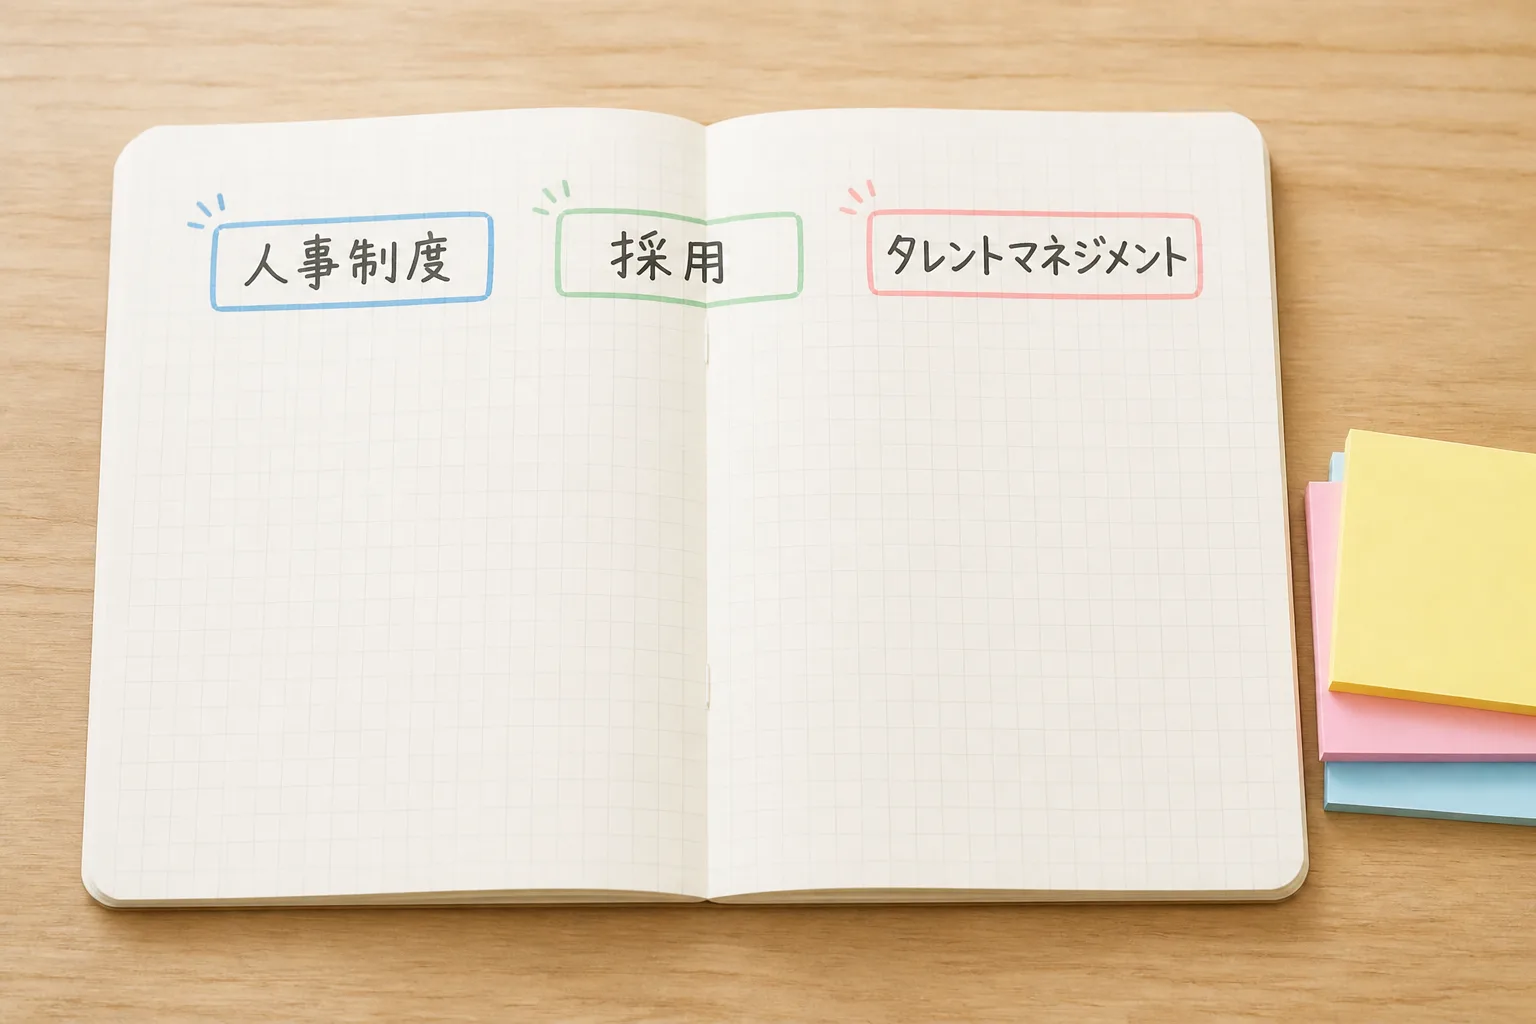 人事制度
採用
タレントマネジメント